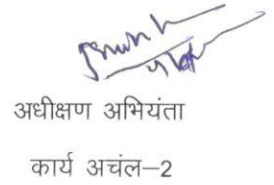 अधीक्षण अभियंता
कार्य अचंल–2